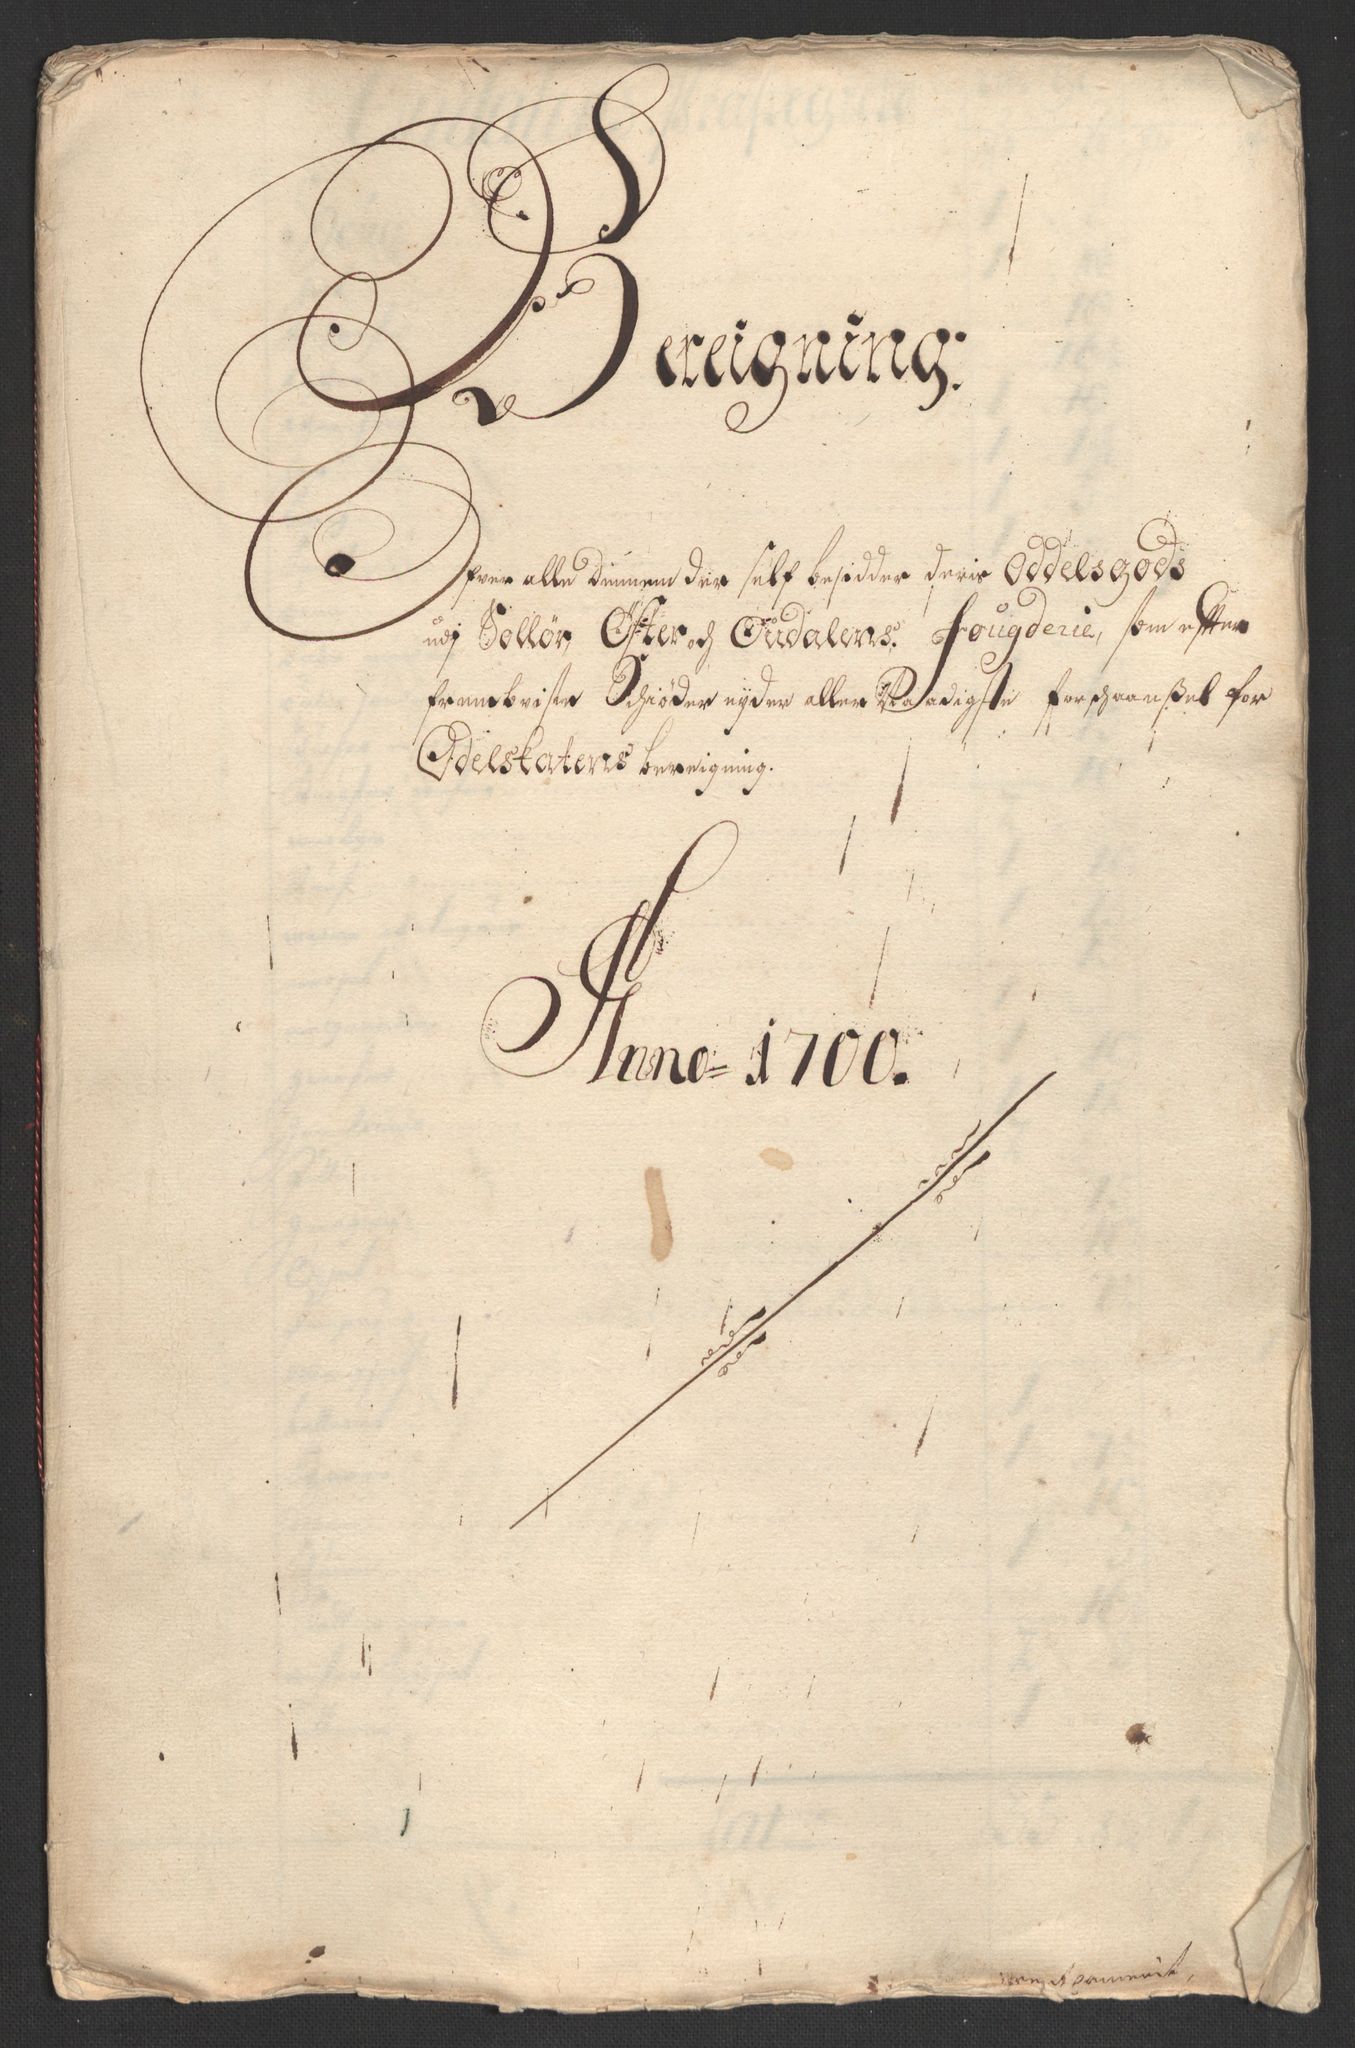 Bereigning:
Ofver alle dennem der self besidder deris Oddelsgods
udj Sollør, Øster och ØudaLens. Fougderie, som efter
frembviste Schiøder nyder aller Naadigste forschaanßel for
Odelskatens bereigning.
Anno 1700.